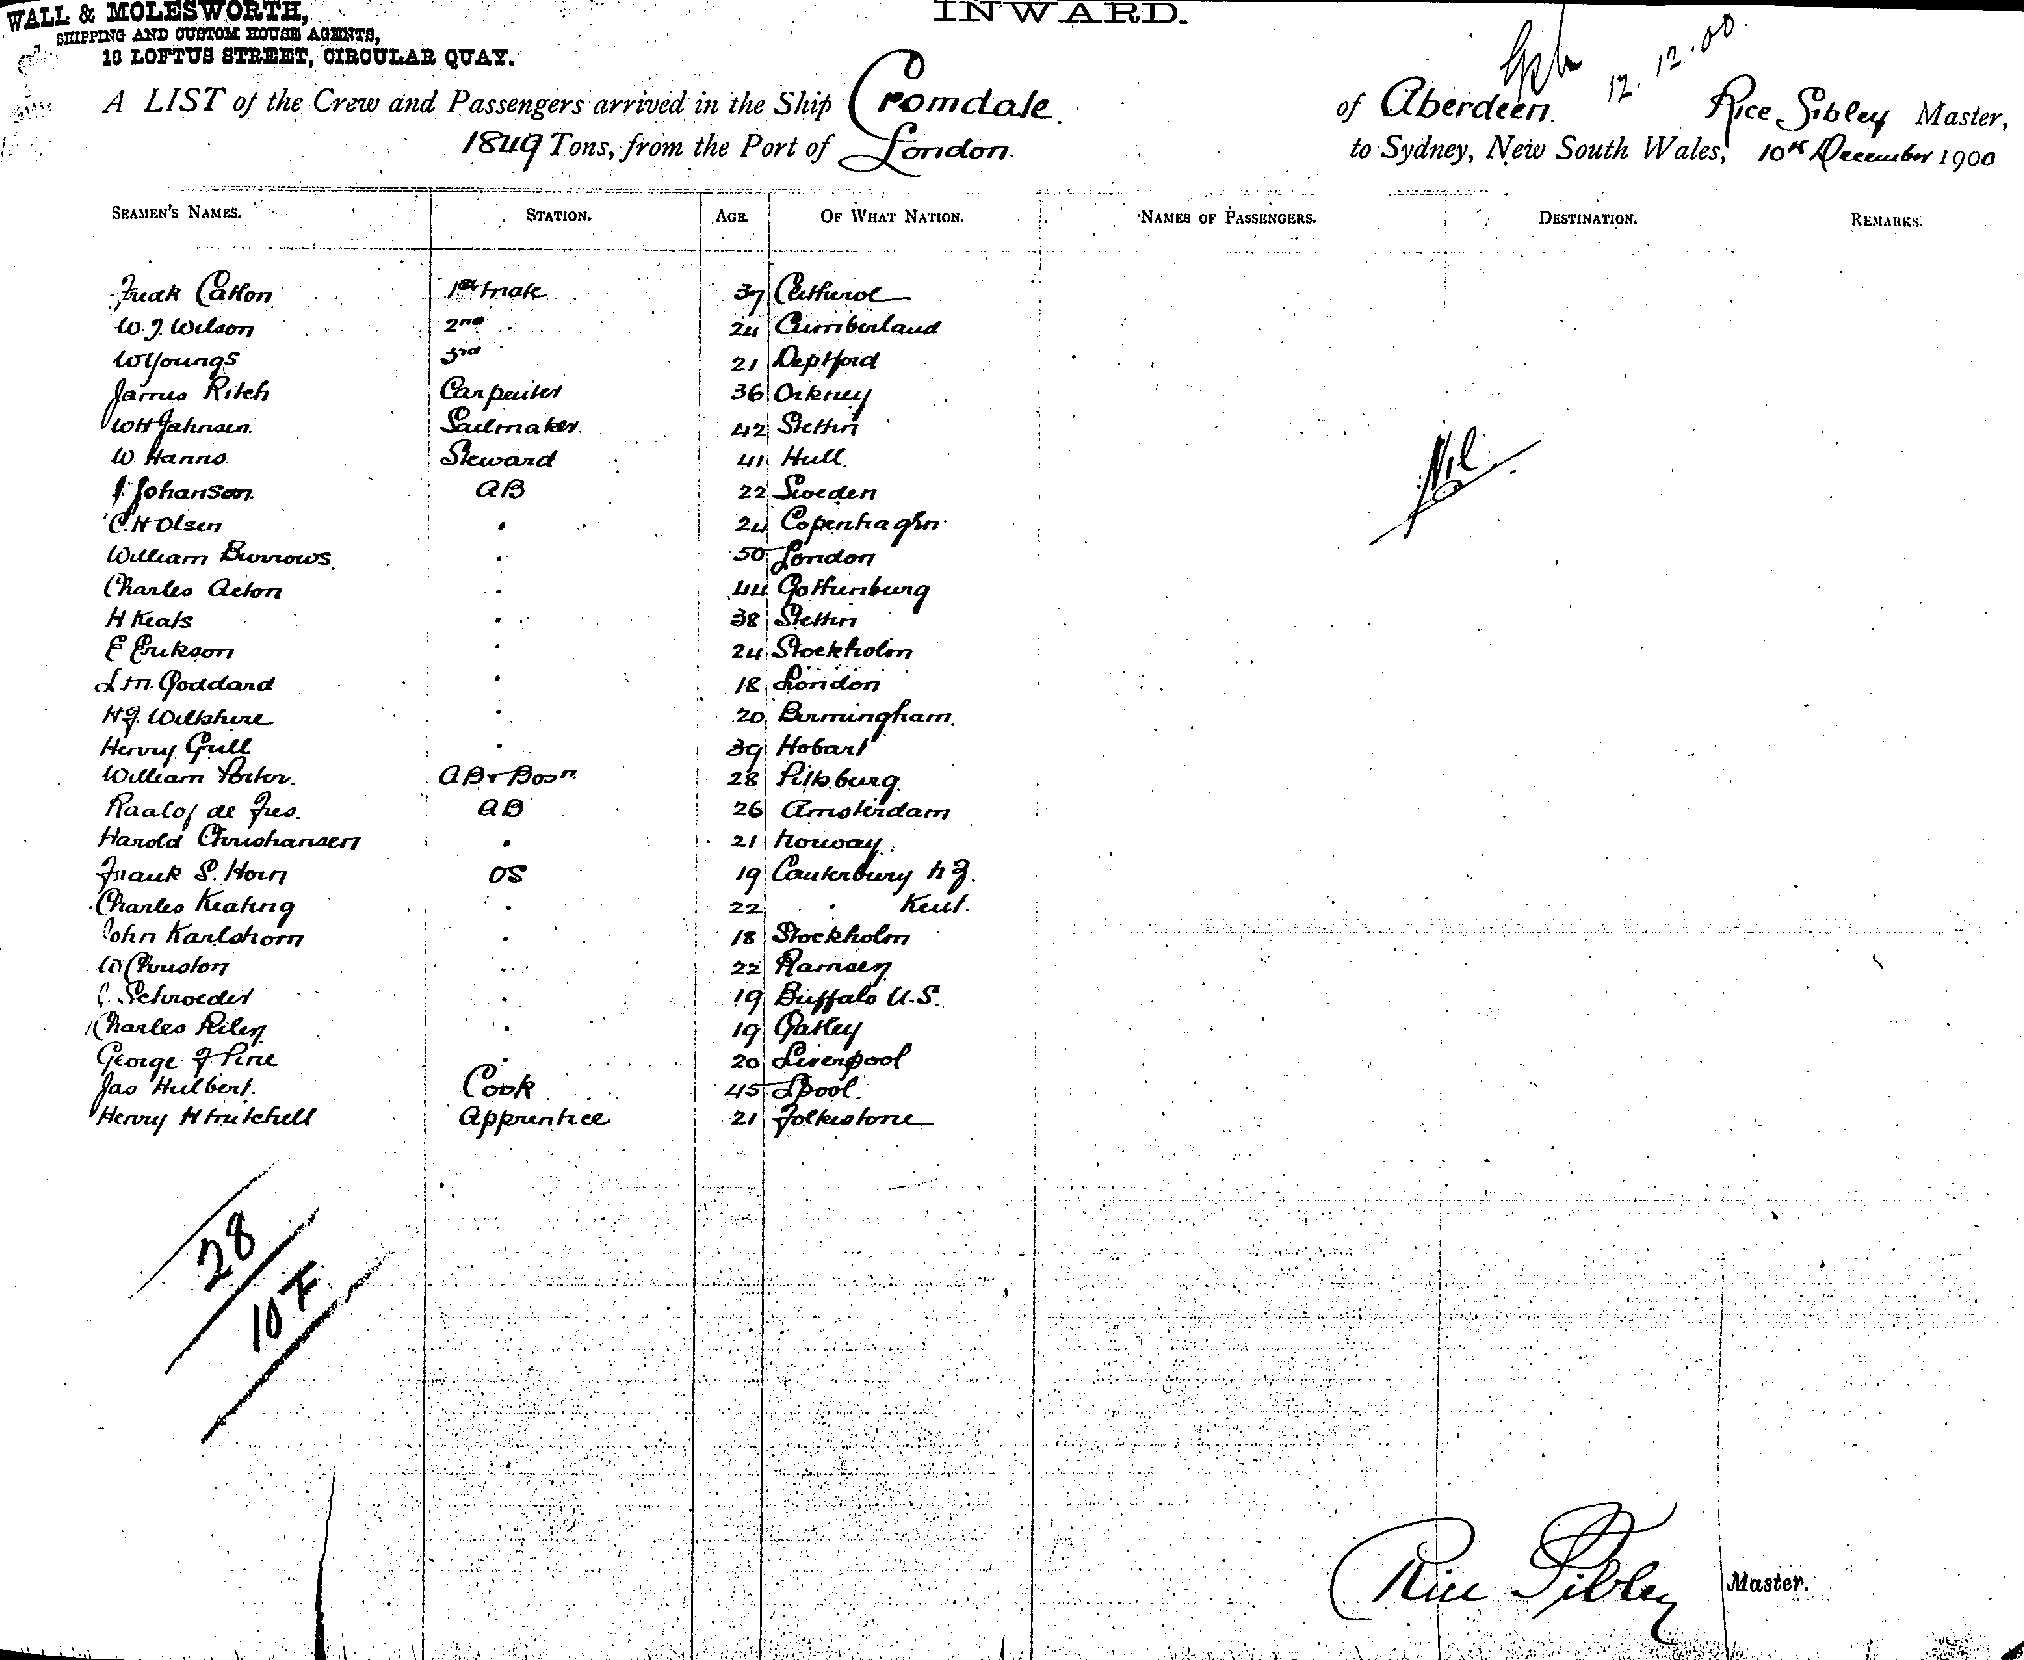 WALL & MOLESWORTH,
SHIPPING AND CUSTOM HOUSE AGENTS,
18 LOFTUS STREET, CIRCULAR QUAY.
INWARD.
12.12.00.
A LIST of the Crew and Passengers arrived in the Ship Cromdale. of Aberdeen. Rice Sibley Master,
1849 Tons, from the Port of London. to Sydney, New South Wales, 10th December 1900
SEAMEN'S NAMES. STATION. AGE. OF WHAT NATION. NAMES OF PASSENGERS. DESTINATION. REMARKS.
Catton 1st Mate 37
W.J. Wilson 2nd 24 Cumberland
W Youngs 3rd 21 Deptford
James Ritch Carpenter 36 Orkney
WH Jahnsen Sailmaker 42 Stettin
W Hanns Steward 41 Hull.
J. Johanson AB 22 Sweden
C.H Olsen " 24 Copenhagen
William Burrows. " 50 London
Charles Acton " 44 Gothenburg
H Keats " 38 Stettin
E Erikson " 24 Stockholm
L M. Goddard " 18 London
H J. Wiltshire " 20 Birmingham.
Henry Grill " 39 Hobart
William Porter. AB & Bosn 28 Pittsburg.
Raalof de Fres. AB 26 Amsterdam
Harold Christiansen " 21 Norway.
Frank S. Horn OS 19 Canterbury N Z.
Charles Keating " 22 " Kent.
John Karlshorn " 18 Stockholm
W Christon " 22 Ramsey
Schroeder " 19 Buffalo U.S.
Charles Riley " 19 Oatley
George F Pine " 20 Liverpool
Jas Hulbert. Cook 45 Lpool.
Henry H Mitchell Apprentice 21 Folkestone
Nil
28
10 F
Rice Sibley Master.